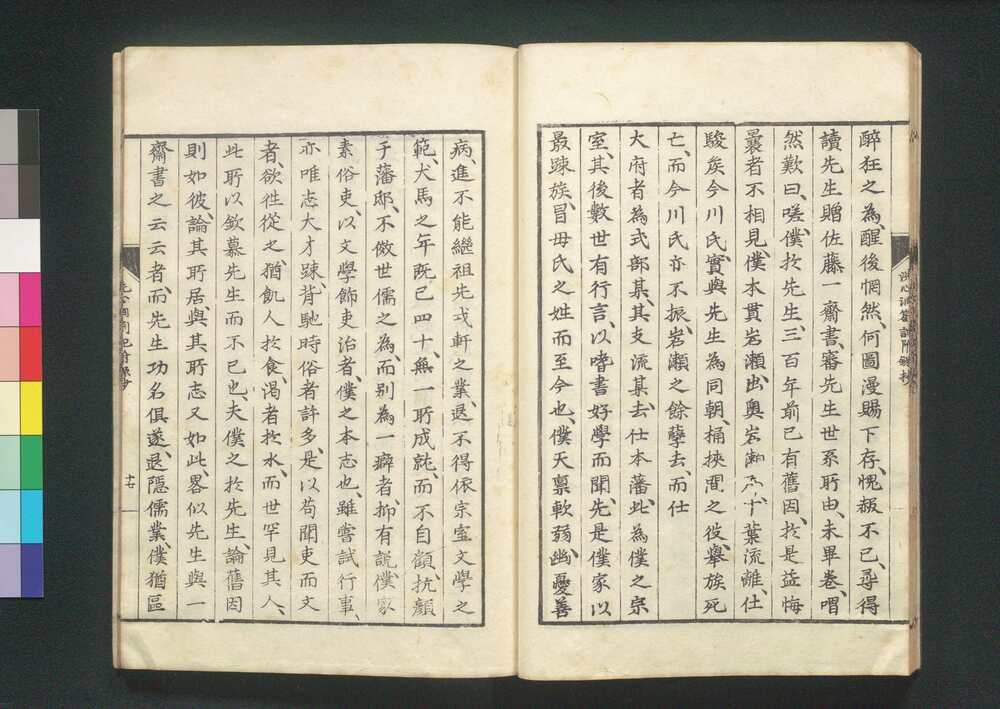 醉狂之為、醒後惘然、何圖漫賜下存、愧赧不已、尋得
讀先生贈佐藤一齋書、審先生世系所由、未畢卷、喟
然歎曰、嗟僕於先生、三百年前已有舊因、於是益悔
曩者不相見、僕本貫岩瀨、出奧岩瀨 葉流離、仕
駿矦今川氏、實與先生為同朝、桶挾間之役、舉族死
亡、而今川氏亦不振、岩瀨之餘孽去、而仕
大府者為式部某、其支流某去仕本藩、此為僕之宗
室、其後數世有行言、以嗜書好學而聞、先是僕家以
最踈族、冒毋氏之姓而至今也、僕天稟軟弱、幽憂善
洗心洞箚記附錄抄
病、進不能繼祖先戎軒之業、退不得依宗室文學之
範、犬馬之年既已四十、無一所成就、而不自顧、抗顏
于藩邸、不倣世儒之為、而別為一癖者、抑有説、僕家
素俗吏、以文學飾吏治者、僕之本志也、雖嘗試行事、
亦唯志大才踈、背馳時俗者許多、是以苟聞吏而文
者、欲徃從之、猶飢人於食、渴者於水、而世罕見其人、
此所以欽慕先生而不已也、夫僕之於先生、論舊因
則如彼、論其所居與其所志又如此、畧似先生與一
齋書之云云者、而先生功名俱遂、退隱儒業、僕猶區
十七